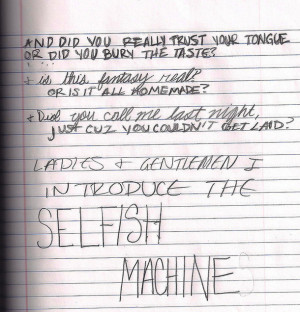 AND DID YOU REALLY TRUST YOUR TONGUE
OR DID YOU BURY THE TASTE?
+ is this fantasy real?
OR IS IT ALL HOMEMADE?
+ Did you call me last night,
JUST CUZ YOU COULDN'T GET LAID?
LADIES + GENTLEMEN I
INTRODUCE THE
SELFISH
MACHINES